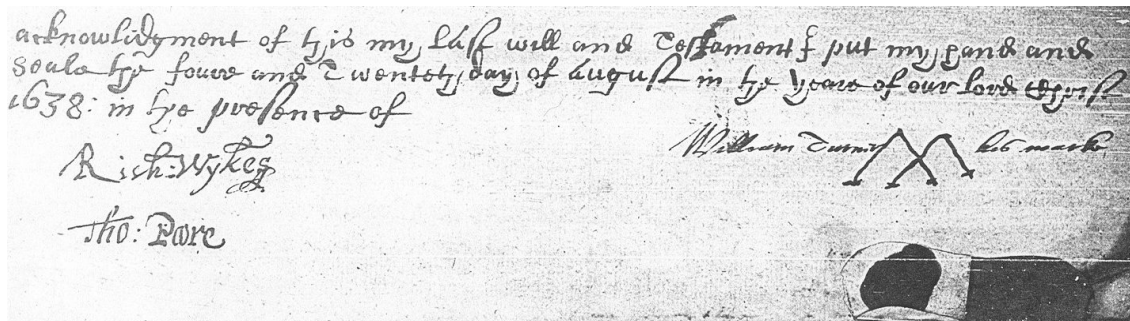 acknowlidgment of this my last will and Testament I put my hand and
Seale the foure and Twenteth day of August in the yeare of our lord Christ
1638: in the presence of
William Turner his marke
Rich: Wykes
Tho: Pore